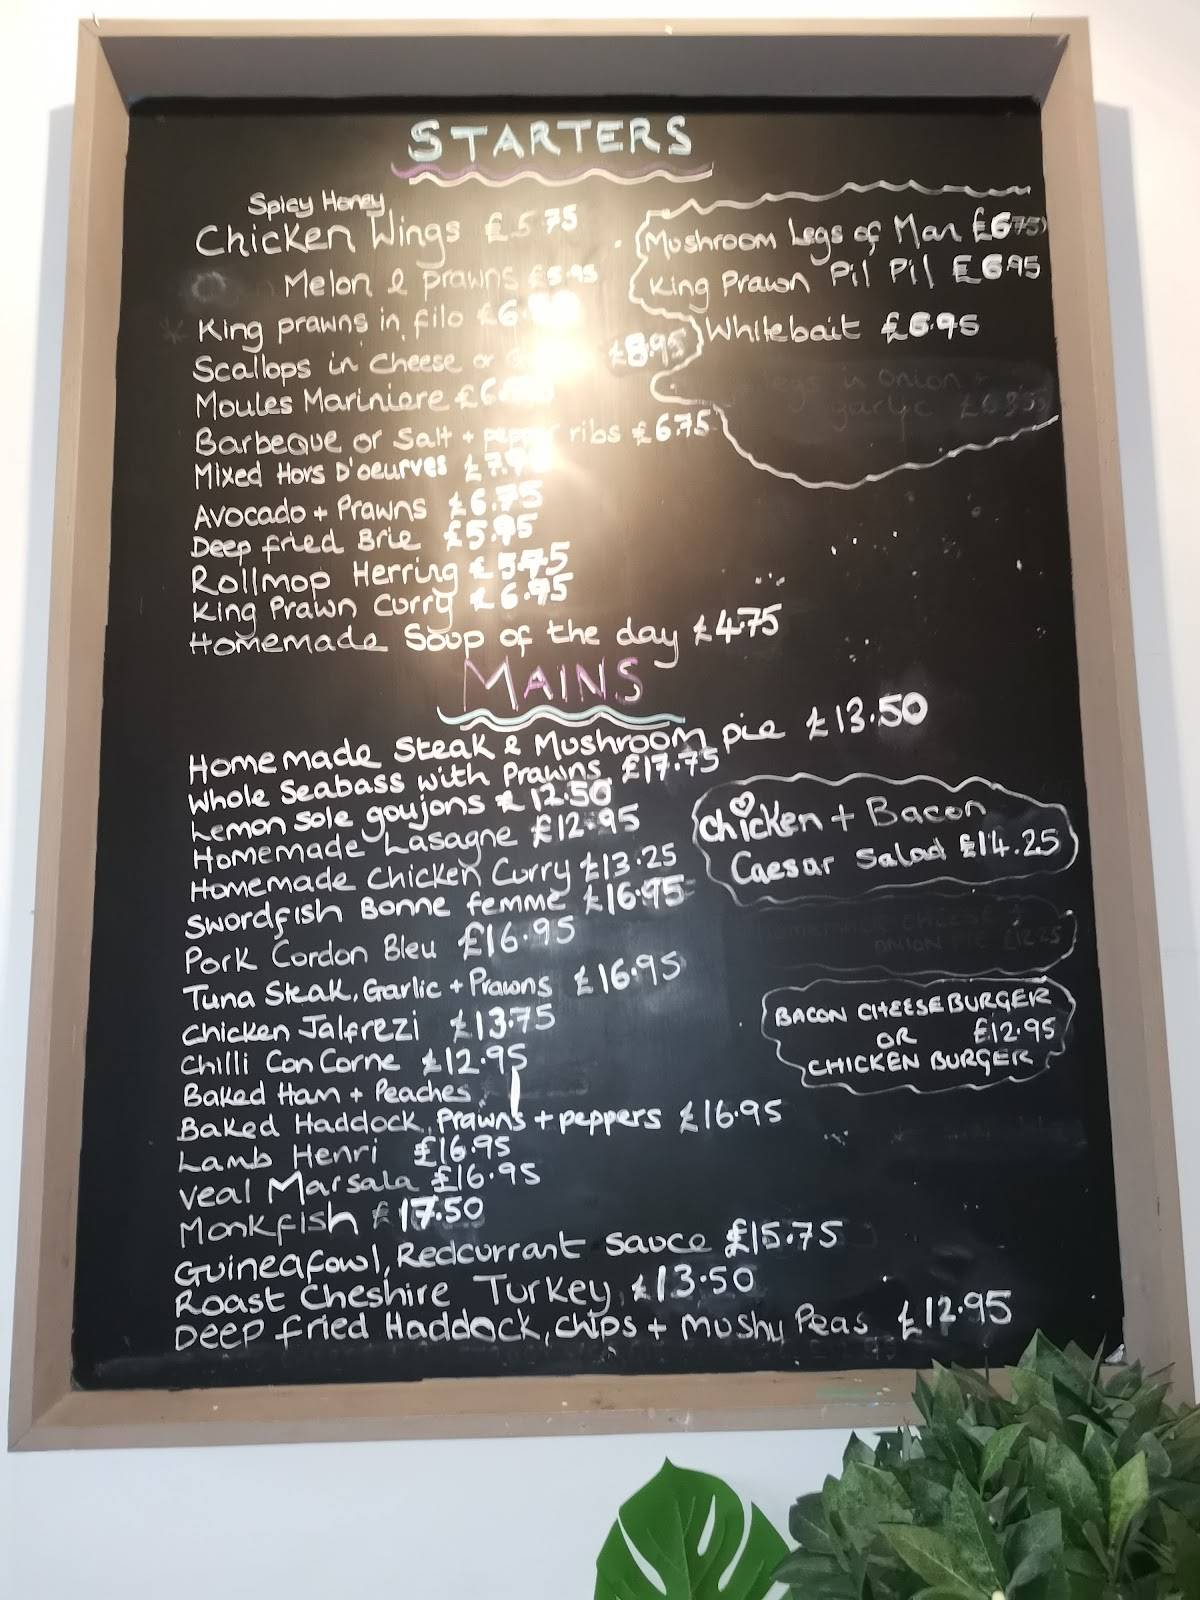 STARTERS
Spicy Honey
Chicken Wings £5.75
Melon & prawns £5.95
King prawns in filo £6.
Scallops in cheese or £8.95
Moules Mariniere £6.
Barbeque or Salt + pepper ribs £6.75
Mixed Hors D'oeurves £7.
Avocado + Prawns £6.75
Deep fried Brie £5.95
Rollmop Herring £5.75
King Prawn Curry £6.95
Homemade Soup of the day £4.75
Mushroom Legs of Man £6.75
King Prawn Pil Pil £6.95
Whitebait £6.95
legs in onion +
garlic £6.95
MAINS
Homemade Steak & Mushroom pie £13.50
Whole Seabass with Prawns £17.75
Lemon sole goujons £12.50
Homemade Lasagne £12.95
Homemade Chicken Curry £13.25
Swordfish Bonne femme £16.95
Pork Cordon Bleu £16.95
Tuna Steak, Garlic + Prawns £16.95
Chicken Jalfrezi £13.75
Chilli Con Corne £12.95
Baked Ham + Peaches
Baked Haddock, Prawns + peppers £16.95
Lamb Henri £16.95
Veal Marsala £16.95
Monkfish £17.50
Guineafowl, Redcurrant sauce £15.75
Roast Cheshire Turkey £13.50
Deep fried Haddock, chips + mushy Peas £12.95
Chicken + Bacon
Caesar Salad £14.25
HOMEMADE CHEESE &
ONION PIE £12.25
BACON CHEESE BURGER
OR £12.95
CHICKEN BURGER